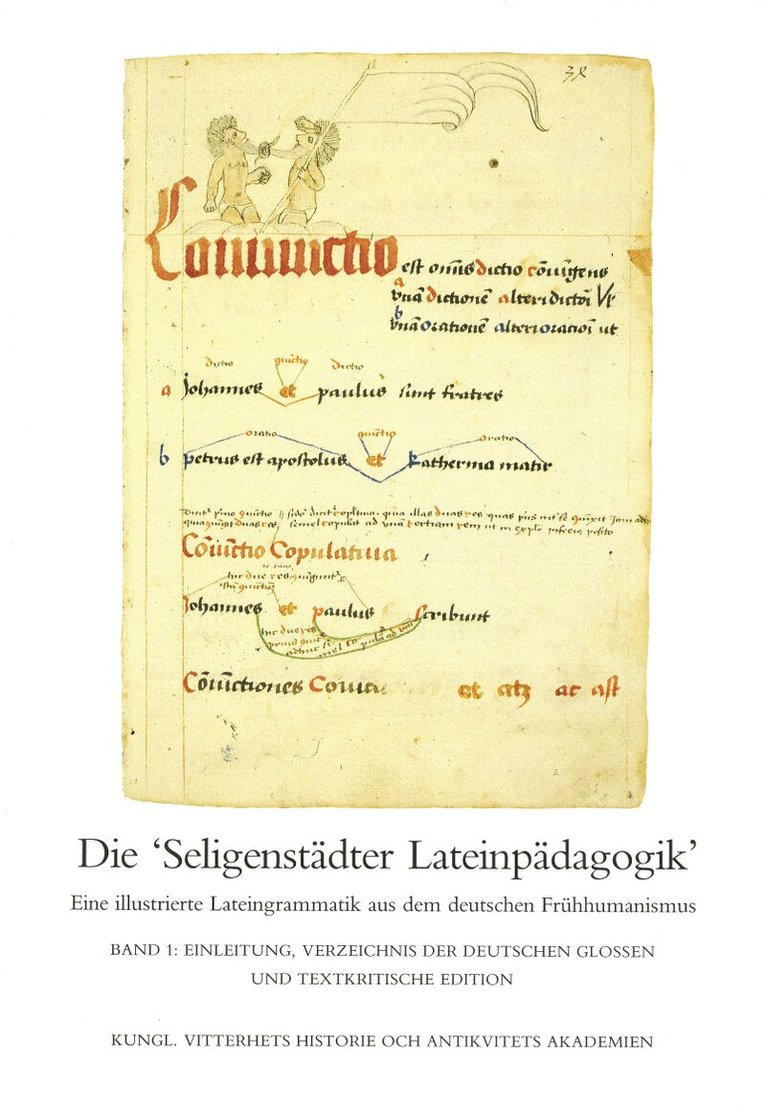 38
Coniunctio est om̄is dictio cōiūgens
a
vnā dictionē alteri dictōi Vt
b
vnā orationē alteri oratiōi ut
dictio ꝯiūctio dictio
a Johannes et paulus sunt fratres
oratio ꝯiūctio oratio
b petrus est apostolus et katherina mat̄r
Cōiūctio Copulatiua
Johannes et paulus scribunt
Cōiūctiones et atqȝ ac ast
Die ‘Seligenstädter Lateinpädagogik’
Eine illustrierte Lateingrammatik aus dem deutschen Frühhumanismus
BAND 1: EINLEITUNG, VERZEICHNIS DER DEUTSCHEN GLOSSEN
UND TEXTKRITISCHE EDITION
KUNGL. VITTERHETS HISTORIE OCH ANTIKVITETS AKADEMIEN